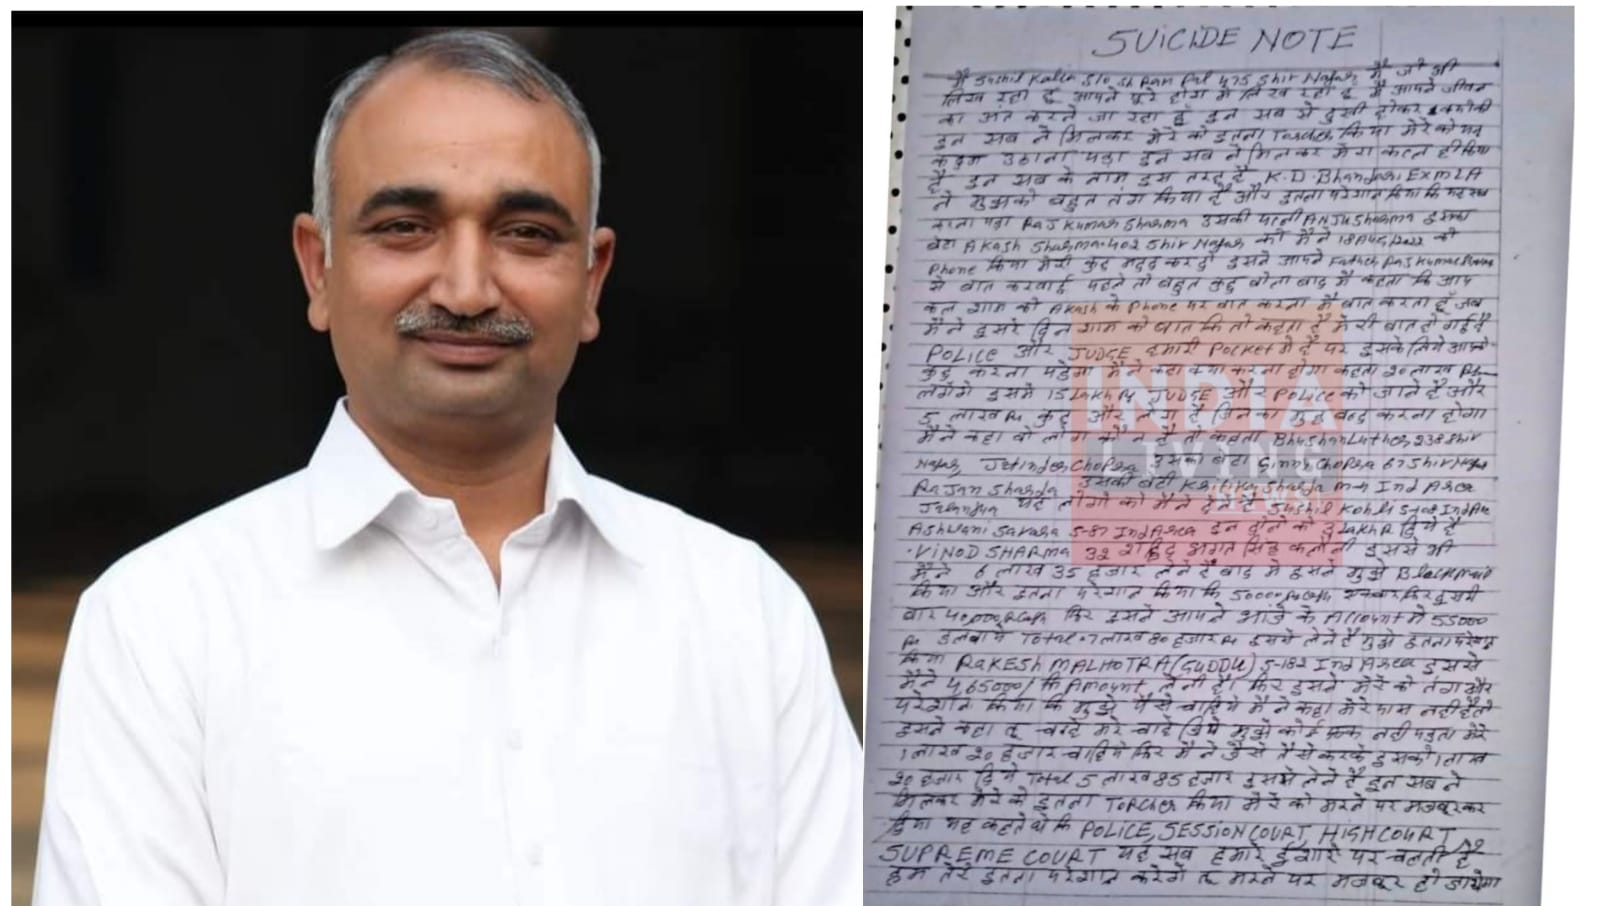 SUICIDE NOTE
मैं Sushil Kalia S/o Sh Ram Pal 475 Shiv Nagar मैं जो भी
लिख रहा हूँ आपने पूरे होश में लिख रहा हूं मैं आपने जीवन
का अंत करने जा रहा हूँ इन सब से दुखी होकर क्योंकी
इन सब ने मिलकर मेरे को इतना Torcher किया मेरे को यह
कदम उठाना पड़ा इन सब ने मिलकर मेरा कत्ल ही किया
है इन सब के नाम इस तरह है K.D. Bhandari Ex MLA
ने मुझको बहुत तंग किया है और इतना परेशान किया कि यह सब
करना पड़ा Raj Kumar Sharma उसकी पत्नी Anju Sharma इसका
बेटा Akash Sharma 402 Shiv Nagar को मैं ने 18 Aug, 2022 को
Phone किया मेरी कुछ मदद कर दो इसने आपने Father Raj Kumar Sharma
से बात करवाई पहले तो बहुत कुछ बोला बाद में कहता कि आप
कल शाम को Akash के Phone पर बात करना मैं बात करता हूँ जब
मैं ने दुसरे दिन शाम को बात कि तो कहता है मेरी बात हो गई है
POLICE और JUDGE हमारी Pocket मे है पर इसके लिये आपको
कुछ करना पड़ेगा मैंने कहा क्या करना होगा कहता 20 लाख Rs
लगेंगे इसमे 15 Lakh Rs JUDGE और Police को जाने है और
5 लाख Rs कुछ और लोग है जिनका मुंह बन्द करना होगा
मैंने कहा वो लोग कौन है तो कहता Bhushan Luther 238 Shiv
Nagar, Jatinder Chopra उसका बेटा Ginny Chopra 67 Shiv Nagar
Rajan Sharda उसकी बेटी Kritika Sharda Ind Area
Jalandhar यह लोगो को मैंने देने है Sushil Kohli Ind Area
Ashwani S-87 Ind Area इन दोनो को 3 Lakh R दिये है
VINOD SHARMA 32 शहिद भगत सिंह कलोनी इससे भी
मैंने 6 लाख 35 हजार लेने है बाद मे इसने मुझे Blackmail
किया और इतना परेशान किया कि 50000 Rs Cash एकबार फिर दुसरी
बार 40,000 R Cash फिर इसने आपने भांजे के Account मे 55000
Rs डलवाये Total 7 लाख 80 हजार Rs इससे लेने है मुझे इतना परेशान
किया RAKESH MALHOTRA (GUDDU) S-182 Ind Area इससे
मैंने 465000/ कि Amount लेनी है। फिर इसने मेरे को तंग और
परेशान किया कि मुझे पैसे चाहिये मैंने कहा मेरे पास नही है तो
इसने कहा तू चाहे मरे चाहे जिये मुझे कोई फ़र्क नही पड़ता मेरे
1 लाख 20 हजार चाहिये फिर मैंने जैसे तैसे करके इसको 1 लाख
20 हजार दिये Total 5 लाख 85 हजार इससे लेने है इन सब ने
मिलकर मेरे को इतना Torcher किया मेरे को मरने पर मजबूर कर
दिया यह कहते थे कि POLICE, SESSION COURT, HIGH COURT,
SUPREME COURT यह सब हमारे ईशारे पर चलती है
हम तेरे इतना परेशान करेगे तू मरने पर मजबूर हो जायेगा
INDIA
LIVING
NEWS